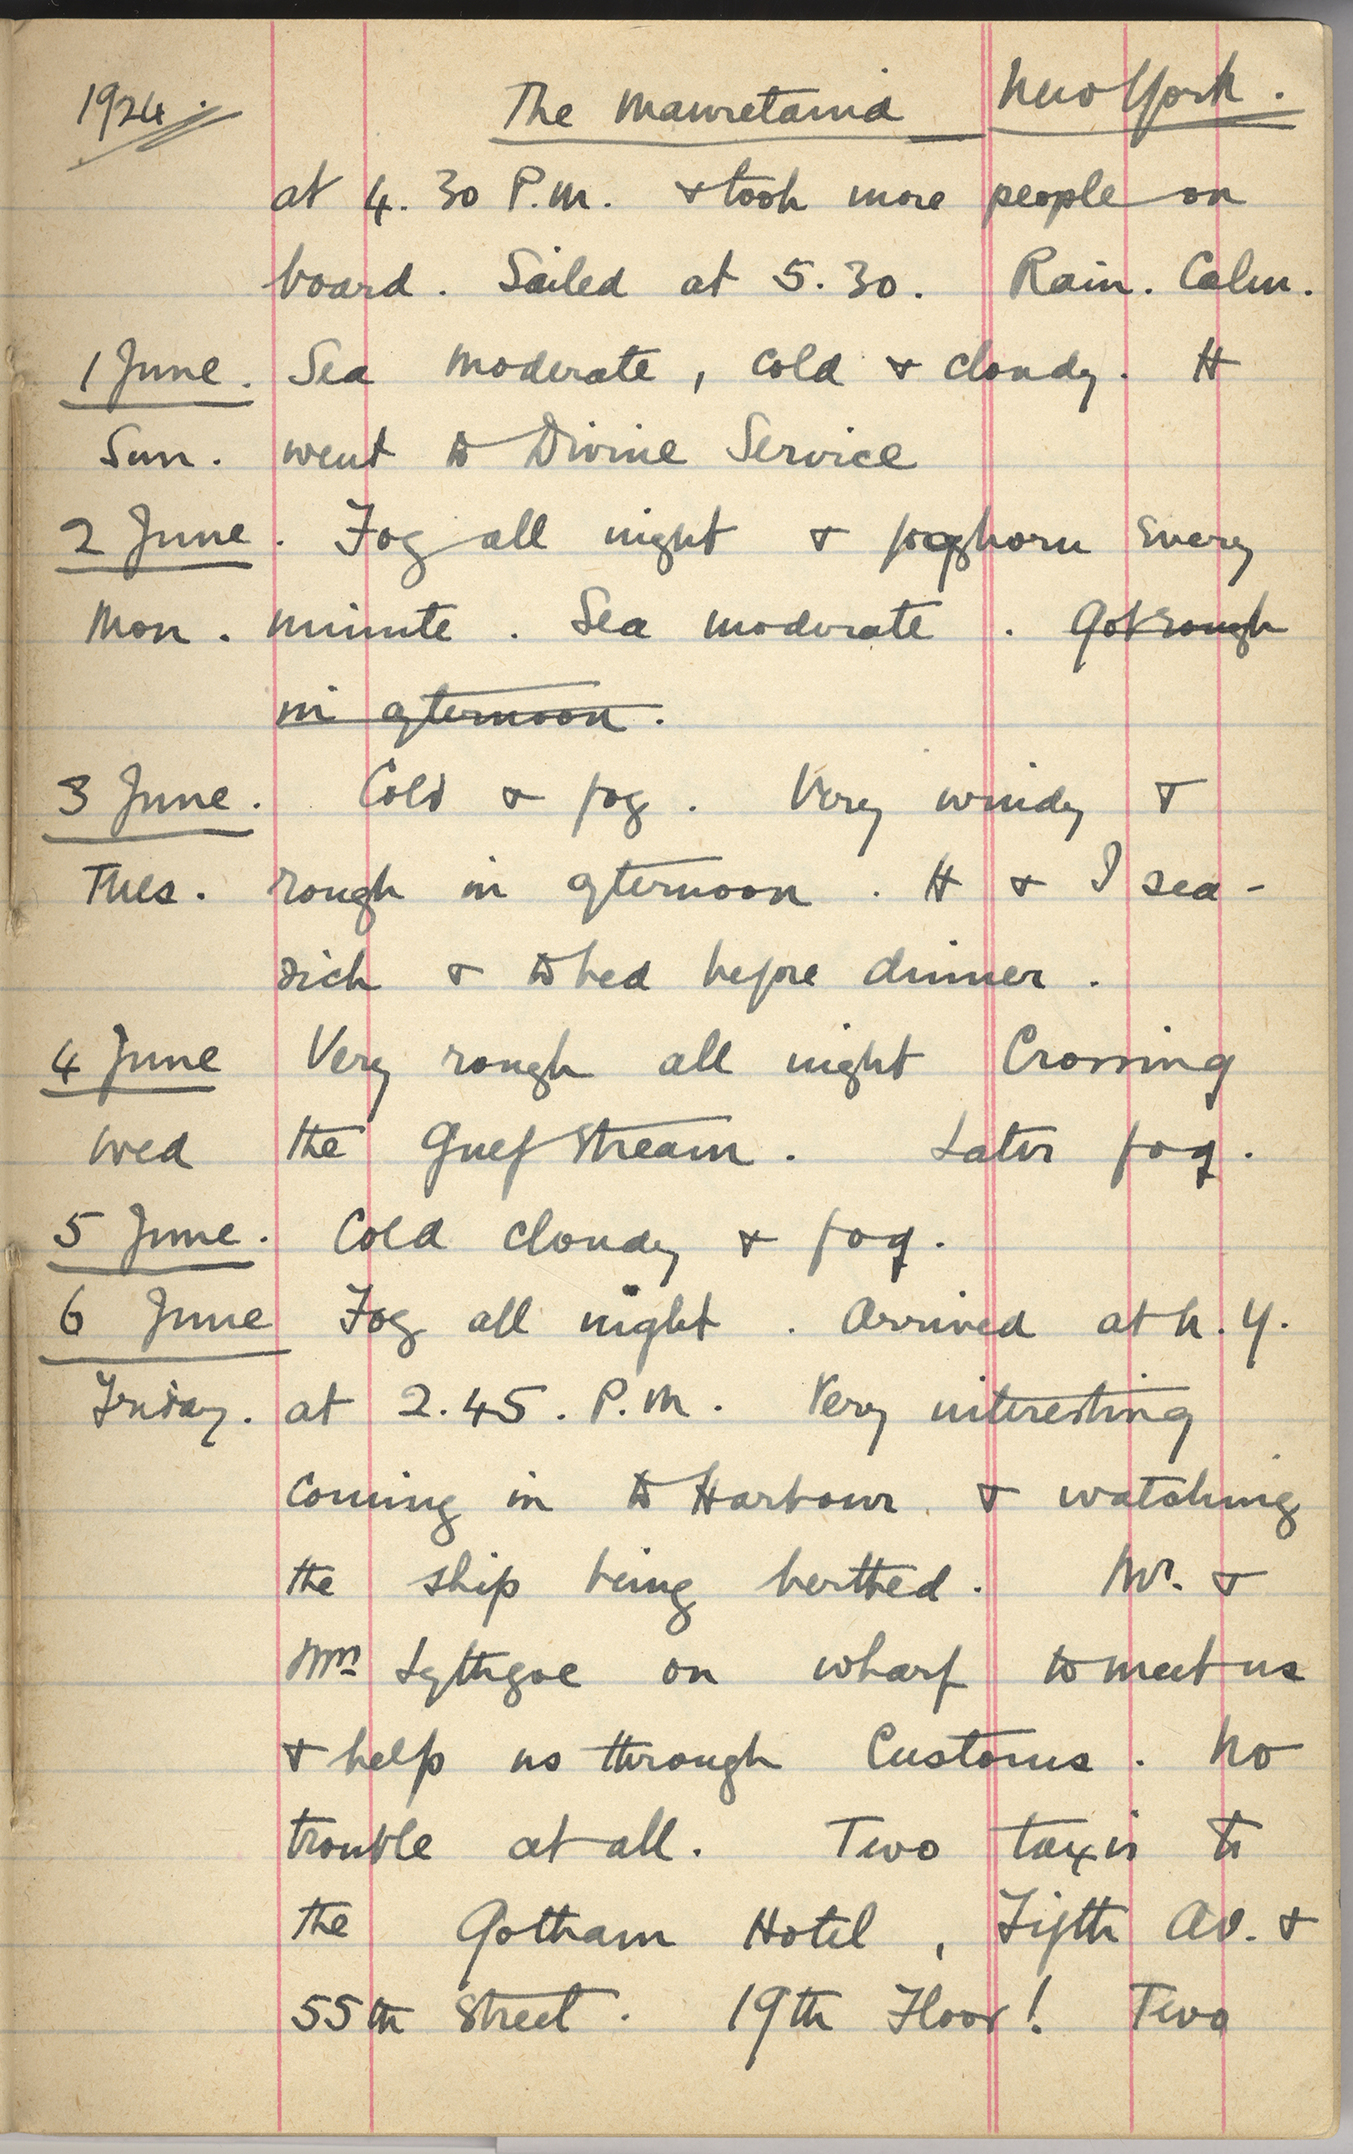 1924. The Mauretania New York.
at 4.30 P.M. & took more people on
board. Sailed at 5.30. Rain. Calm.
1 June. Sea moderate, cold & cloudy. H
Sun. went to Divine Service
2 June. Fog all night & foghorn every
Mon. minute. Sea moderate. Got rough
in afternoon.
3 June. Cold & fog. Very windy &
Tues. rough in afternoon. H & I sea-
sick & to bed before dinner.
4 June Very rough all night Crossing
Wed the Gulf Stream. Later fog.
5 June. Cold cloudy & fog.
6 June Fog all night. Arrived at N.Y.
Friday. at 2.45. P.M. Very interesting
coming in to Harbour & watching
the ship being berthed. Mr. &
Mrs Lythgoe on wharf to meet us
& help us through Customs. No
trouble at all. Two taxis to
the Gotham Hotel, Fifth Av. &
55th Street. 19th Floor! Two